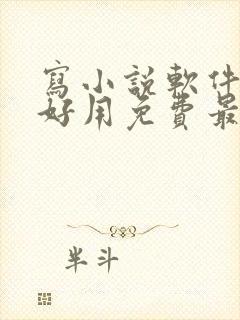 寫小說軟件
好用免費最
半斗